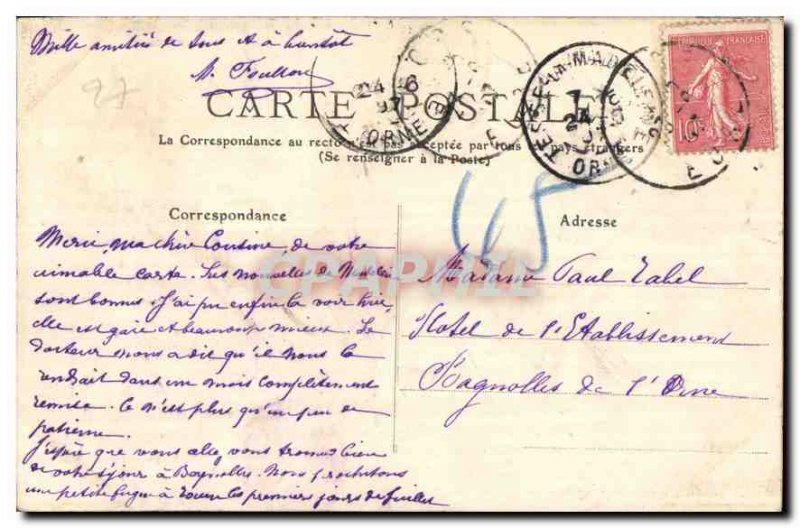 Mille amitiés de tous et à bientôt
M.
27
CARTE POSTALE
La Correspondance au recto n'est pas acceptée par tous pays étrangers
(Se renseigner à la Poste)
ORNE
ORNE
10c
Correspondance
Merci, ma chère Cousine, de votre
aimable carte. Les nouvelles de
sont bonnes. J'ai pu enfin la voir hier,
elle est gaie et beaucoup mieux. Le
docteur nous a dit qu'il nous la
rendrait dans un mois complètement
remise. Ce n'est plus qu'un peu de
patience.
J'espère que vous allez vous trouver bien
de votre séjour à Bagnolles. Nous
une petite fugue à Rouen les premiers jours de Juillet
Adresse
Madame Paul
Hotel de l'Etablissement
Bagnolles de l'Orne
CPAPHIL